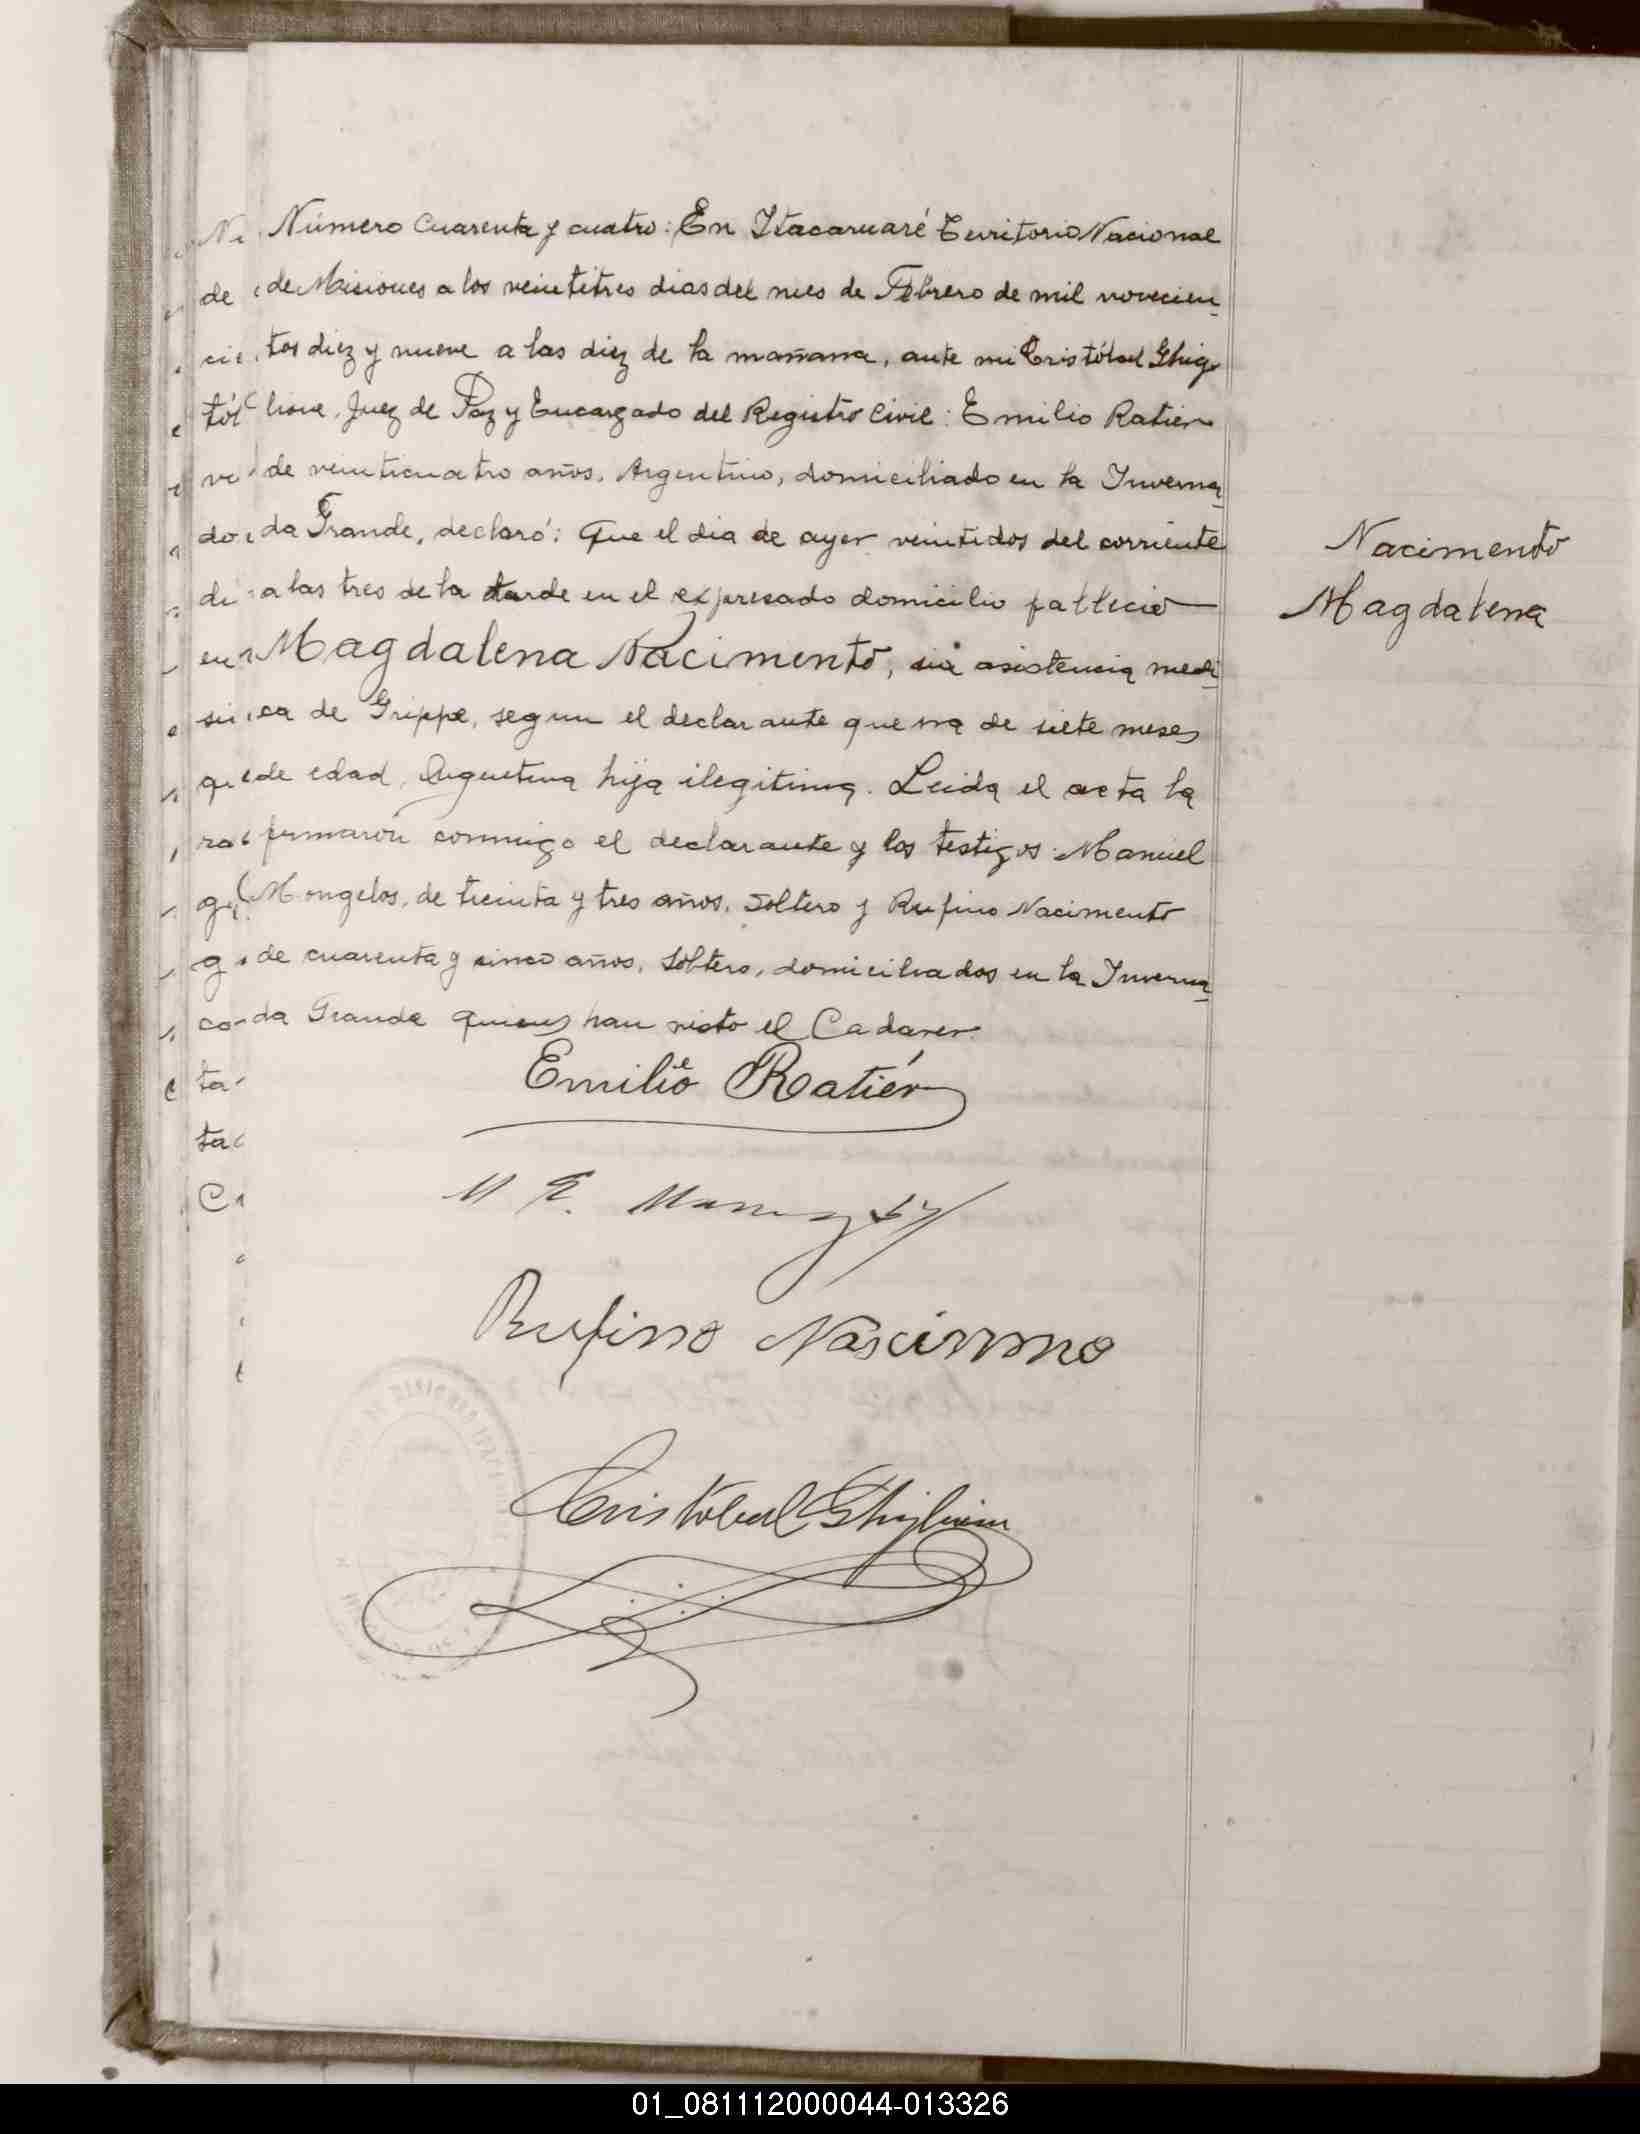 Número Cuarenta y cuatro: En Itacaruaré Territorio Nacional
de Misiones a los veintitres dias del mes de Febrero de mil novecien_
tos diez y nueve a las diez de la mañana, ante mi Cristóbal Ghig-
lione, Juez de Paz y Encargado del Registro Civil: Emilio Ratier
de veinticuatro años, Argentino, domiciliado en la Inverna_
da Grande, declaró: Que el dia de ayer veintidos del corriente
a las tres de la tarde en el expresado domicilio falleció
Nacimento
Magdalena
Magdalena Nacimento, sin asistencia medi_
ca de Grippe, segun el declarante que era de siete meses
de edad, Argentina hija ilegitima. Leida el acta la
firmaron conmigo el declarante y los testigos Manuel
Mongelos, de treinta y tres años, Soltero y Rufino Nacimento
de cuarenta y cinco años, Soltero, domiciliados en la Inverna_
da Grande quienes han visto el Cadaver.
Emilio Ratiér
M E.
Rufino Nascimmo
Cristobal Ghiglione
01_081112000044-013326